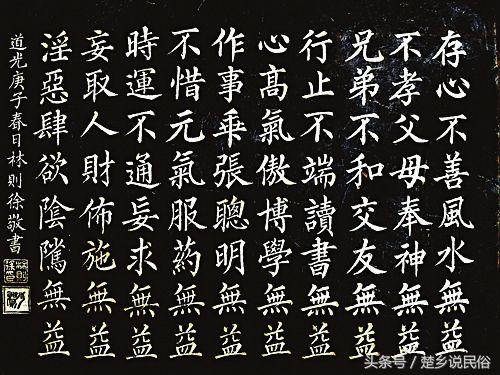 存心不善風水無益
不孝父母奉神無益
兄弟不和交友無益
行止不端讀書無益
心高氣傲博學無益
作事乖張聰明無益
不惜元氣服藥無益
時運不通妄求無益
妄取人財佈施無益
淫惡肆欲陰騭無益
道光庚子春日林則徐敬書
头条号 / 楚乡说民俗